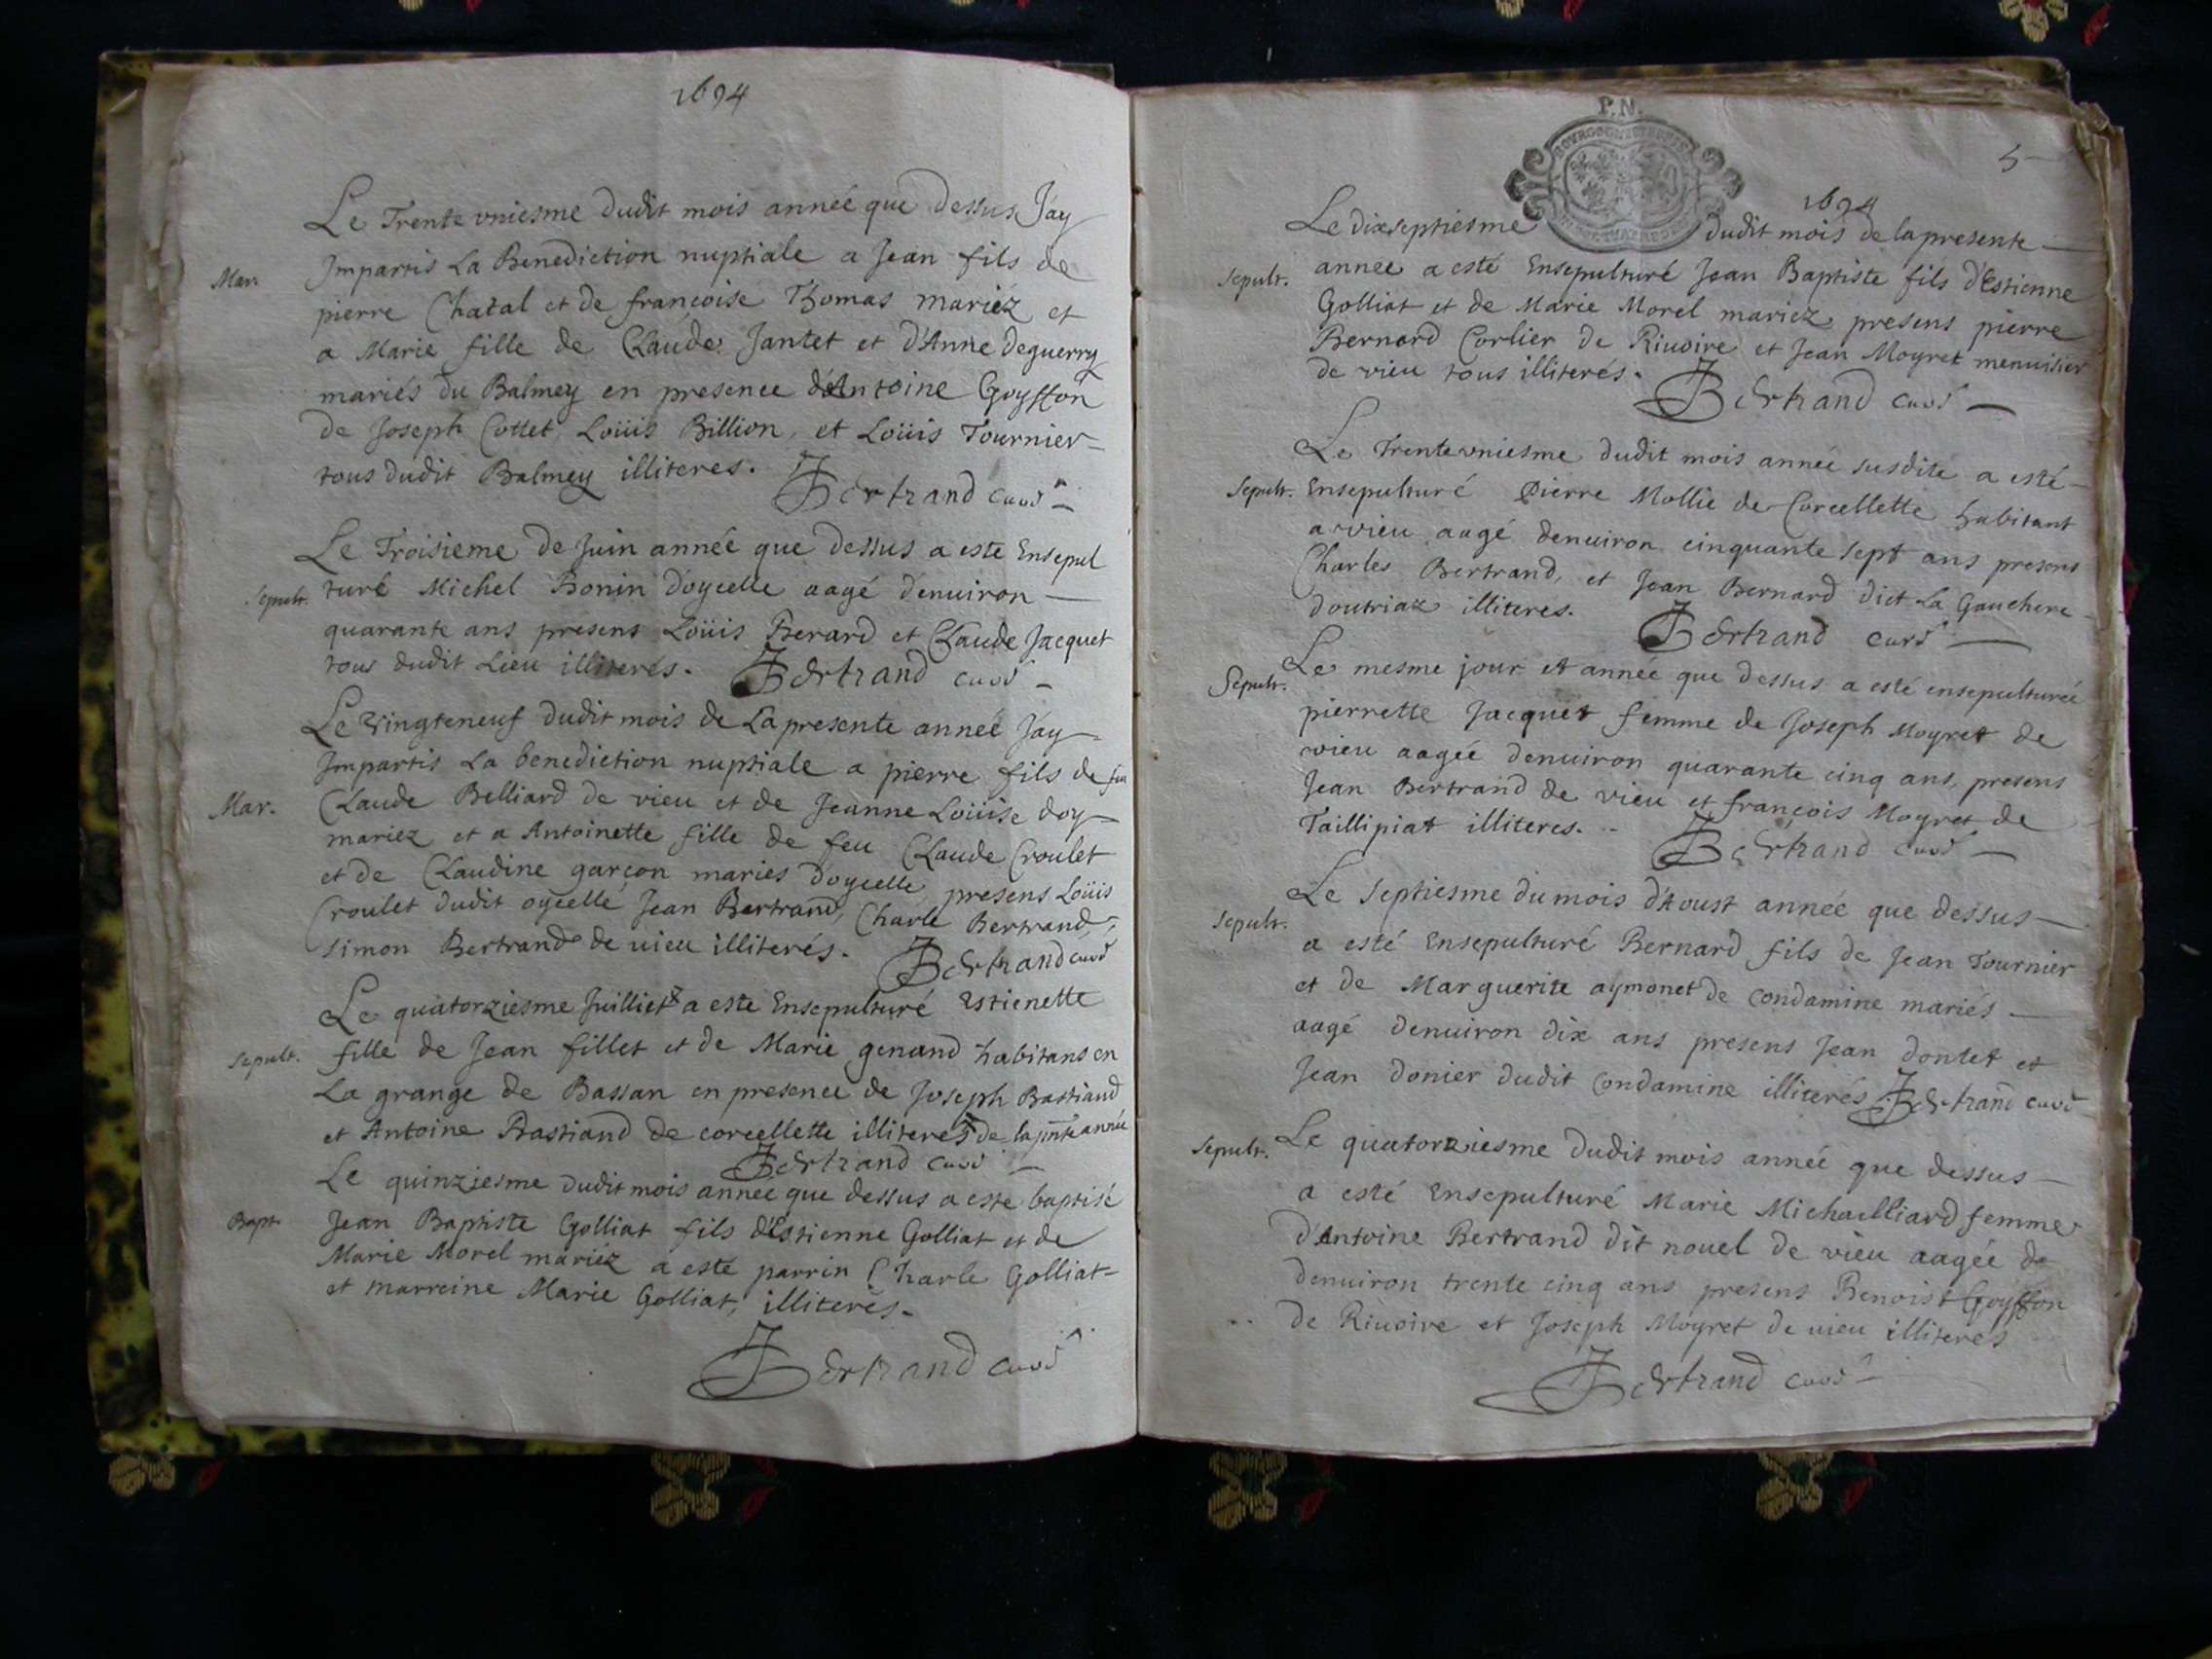 1694
Le Trente vniesme dudit mois année que dessus Jay
Mar. Impartis La Benediction nuptiale a Jean fils de
pierre Chatal et de françoise Thomas mariéz et
a Marie fille de Claude Jantet et d'Anne deguerry
mariés du Balmey en presence d'Antoine Goyffon
de Joseph Cottet, Loüis Billion, et Loüis Tournier
tous dudit Balmey illiteres. JBertrand curé
Le Troisieme de Juin année que dessus a este Ensepul
Sepult. turé Michel Bonin d'oycelle aagé d'enuiron
quarante ans presens Loüis Berard et Claude Jacquet
tous dudit Lieu illiterés. JBertrand curé
Le vingteneuf dudit mois de La presente année Jay
Impartis La benediction nuptiale a pierre fils de feu
Mar. Claude Belliard de vieu et de Jeanne Loüise doy
mariez et a Antoinette fille de feu Claude Croulet
et de Claudine garçon mariés d'oycelle presens Loüis
Croulet dudit oycelle Jean Bertrand, Charle Bertrand,
simon Bertrand de uieu illiterés. JBertrand curé
Le quatorziesme Juilliet a este Ensepulturé Estienette
Sepult. fille de Jean fillet et de Marie genand habitans en
La grange de Bassan en presence de Joseph Bastiand
et Antoine Bastiand de corcellette illiteres de la pnte année
JBertrand curé
Le quinziesme dudit mois année que dessus a este baptisé
Bapt. Jean Baptiste Golliat fils d'Estienne Golliat et de
Marie Morel mariez a esté parrin Charle Golliat
et marreine Marie Golliat, illiterés.
JBertrand curé
P.N.
5
1694
Le dixseptiesme dudit mois de la presente
Sepult. année a esté Ensepulturé Jean Baptiste fils d'Estienne
Golliat et de Marie Morel mariez presens pierre
Bernard Corlier de Riuoire et Jean Moyret menuisier
de vieu tous illiterés. JBertrand curé
Le Trentevniesme dudit mois année susdite a esté
Sepult. Ensepulturé Pierre Mollie de Corcellette habitant
a vieu aagé denuiron cinquante sept ans presens
Charles Bertrand, et Jean Bernard dict La Gauchere
doutriaz illiterés. JBertrand curé
Le mesme jour et année que dessus a esté ensepulturée
Sepult. pierrette Jacquet femme de Joseph Moyret de
vieu aagée denuiron quarante cinq ans, presens
Jean Bertrand de vieu et françois Moyret de
Taillipiat illiteres. JBertrand curé
Le septiesme du mois d'Aoust année que dessus
Sepult. a esté Ensepulturé Bernard fils de Jean Tournier
et de Marguerite aymonet de condamine mariés
aagé denuiron dix ans presens Jean dontet et
Jean donier dudit condamine illiterés JBertrand curé
Sepult. Le quatorziesme dudit mois année que dessus
a esté Ensepulturé Marie Michailliard femme
d'Antoine Bertrand dit nouel de vieu aagée de
denuiron trente cinq ans presens Benoist Goyffon
de Riuoire et Joseph Moyret de uieu illiteres
JBertrand curé